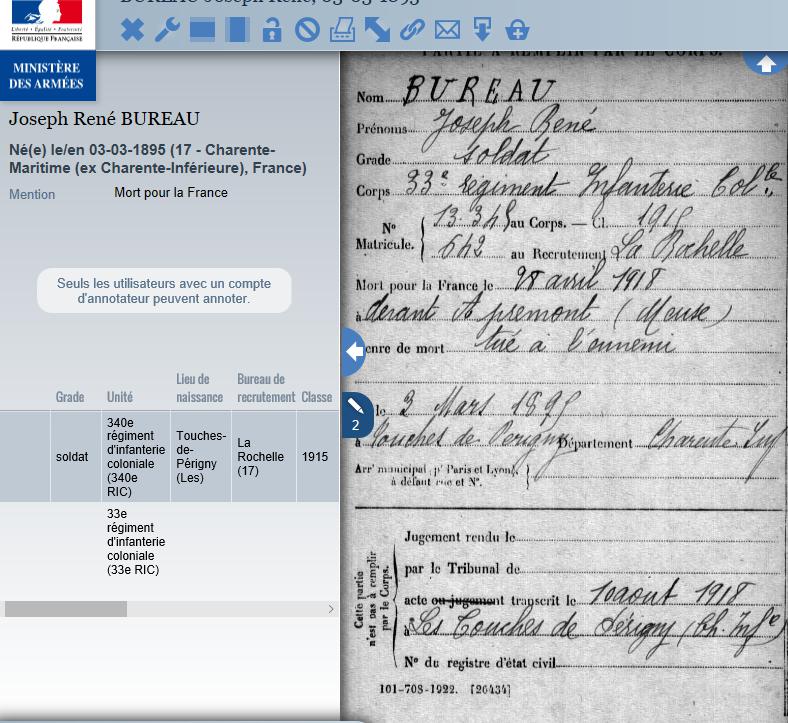 BUREAU Joseph René, 03-03-1895
Liberté • Égalité • Fraternité
RÉPUBLIQUE FRANÇAISE
MINISTÈRE
DES ARMÉES
Joseph René BUREAU
Né(e) le/en 03-03-1895 (17 - Charente-
Maritime (ex Charente-Inférieure), France)
Mention Mort pour la France
Seuls les utilisateurs avec un compte
d'annotateur peuvent annoter.
Grade Unité Lieu de naissance Bureau de recrutement Classe
soldat 340e régiment d'infanterie coloniale (340e RIC) Touches-de-Périgny (Les) La Rochelle (17) 1915
33e régiment d'infanterie coloniale (33e RIC)
2
PARTIE À REMPLIR PAR LE CORPS.
Nom BUREAU
Prénoms Joseph René
Grade soldat
Corps 33e régiment Infanterie Colle
No Matricule. 13.345 au Corps. — Cl. 1915
642 au Recrutement La Rochelle
Mort pour la France le 28 avril 1918
à devant Apremont (Meuse)
enre de mort tué à l'ennemi
le 3 Mars 1895
à Touches de Perigny Département Charente Inf
Arrt municipal (pr Paris et Lyon),
à défaut rue et No.
Cette partie n'est pas à remplir par le Corps.
Jugement rendu le
par le Tribunal de
acte ou jugement transcrit le 10 aout 1918
à Les Touches de Périgny (Ch. Infe
No du registre d'état civil
101-708-1922. [26434]